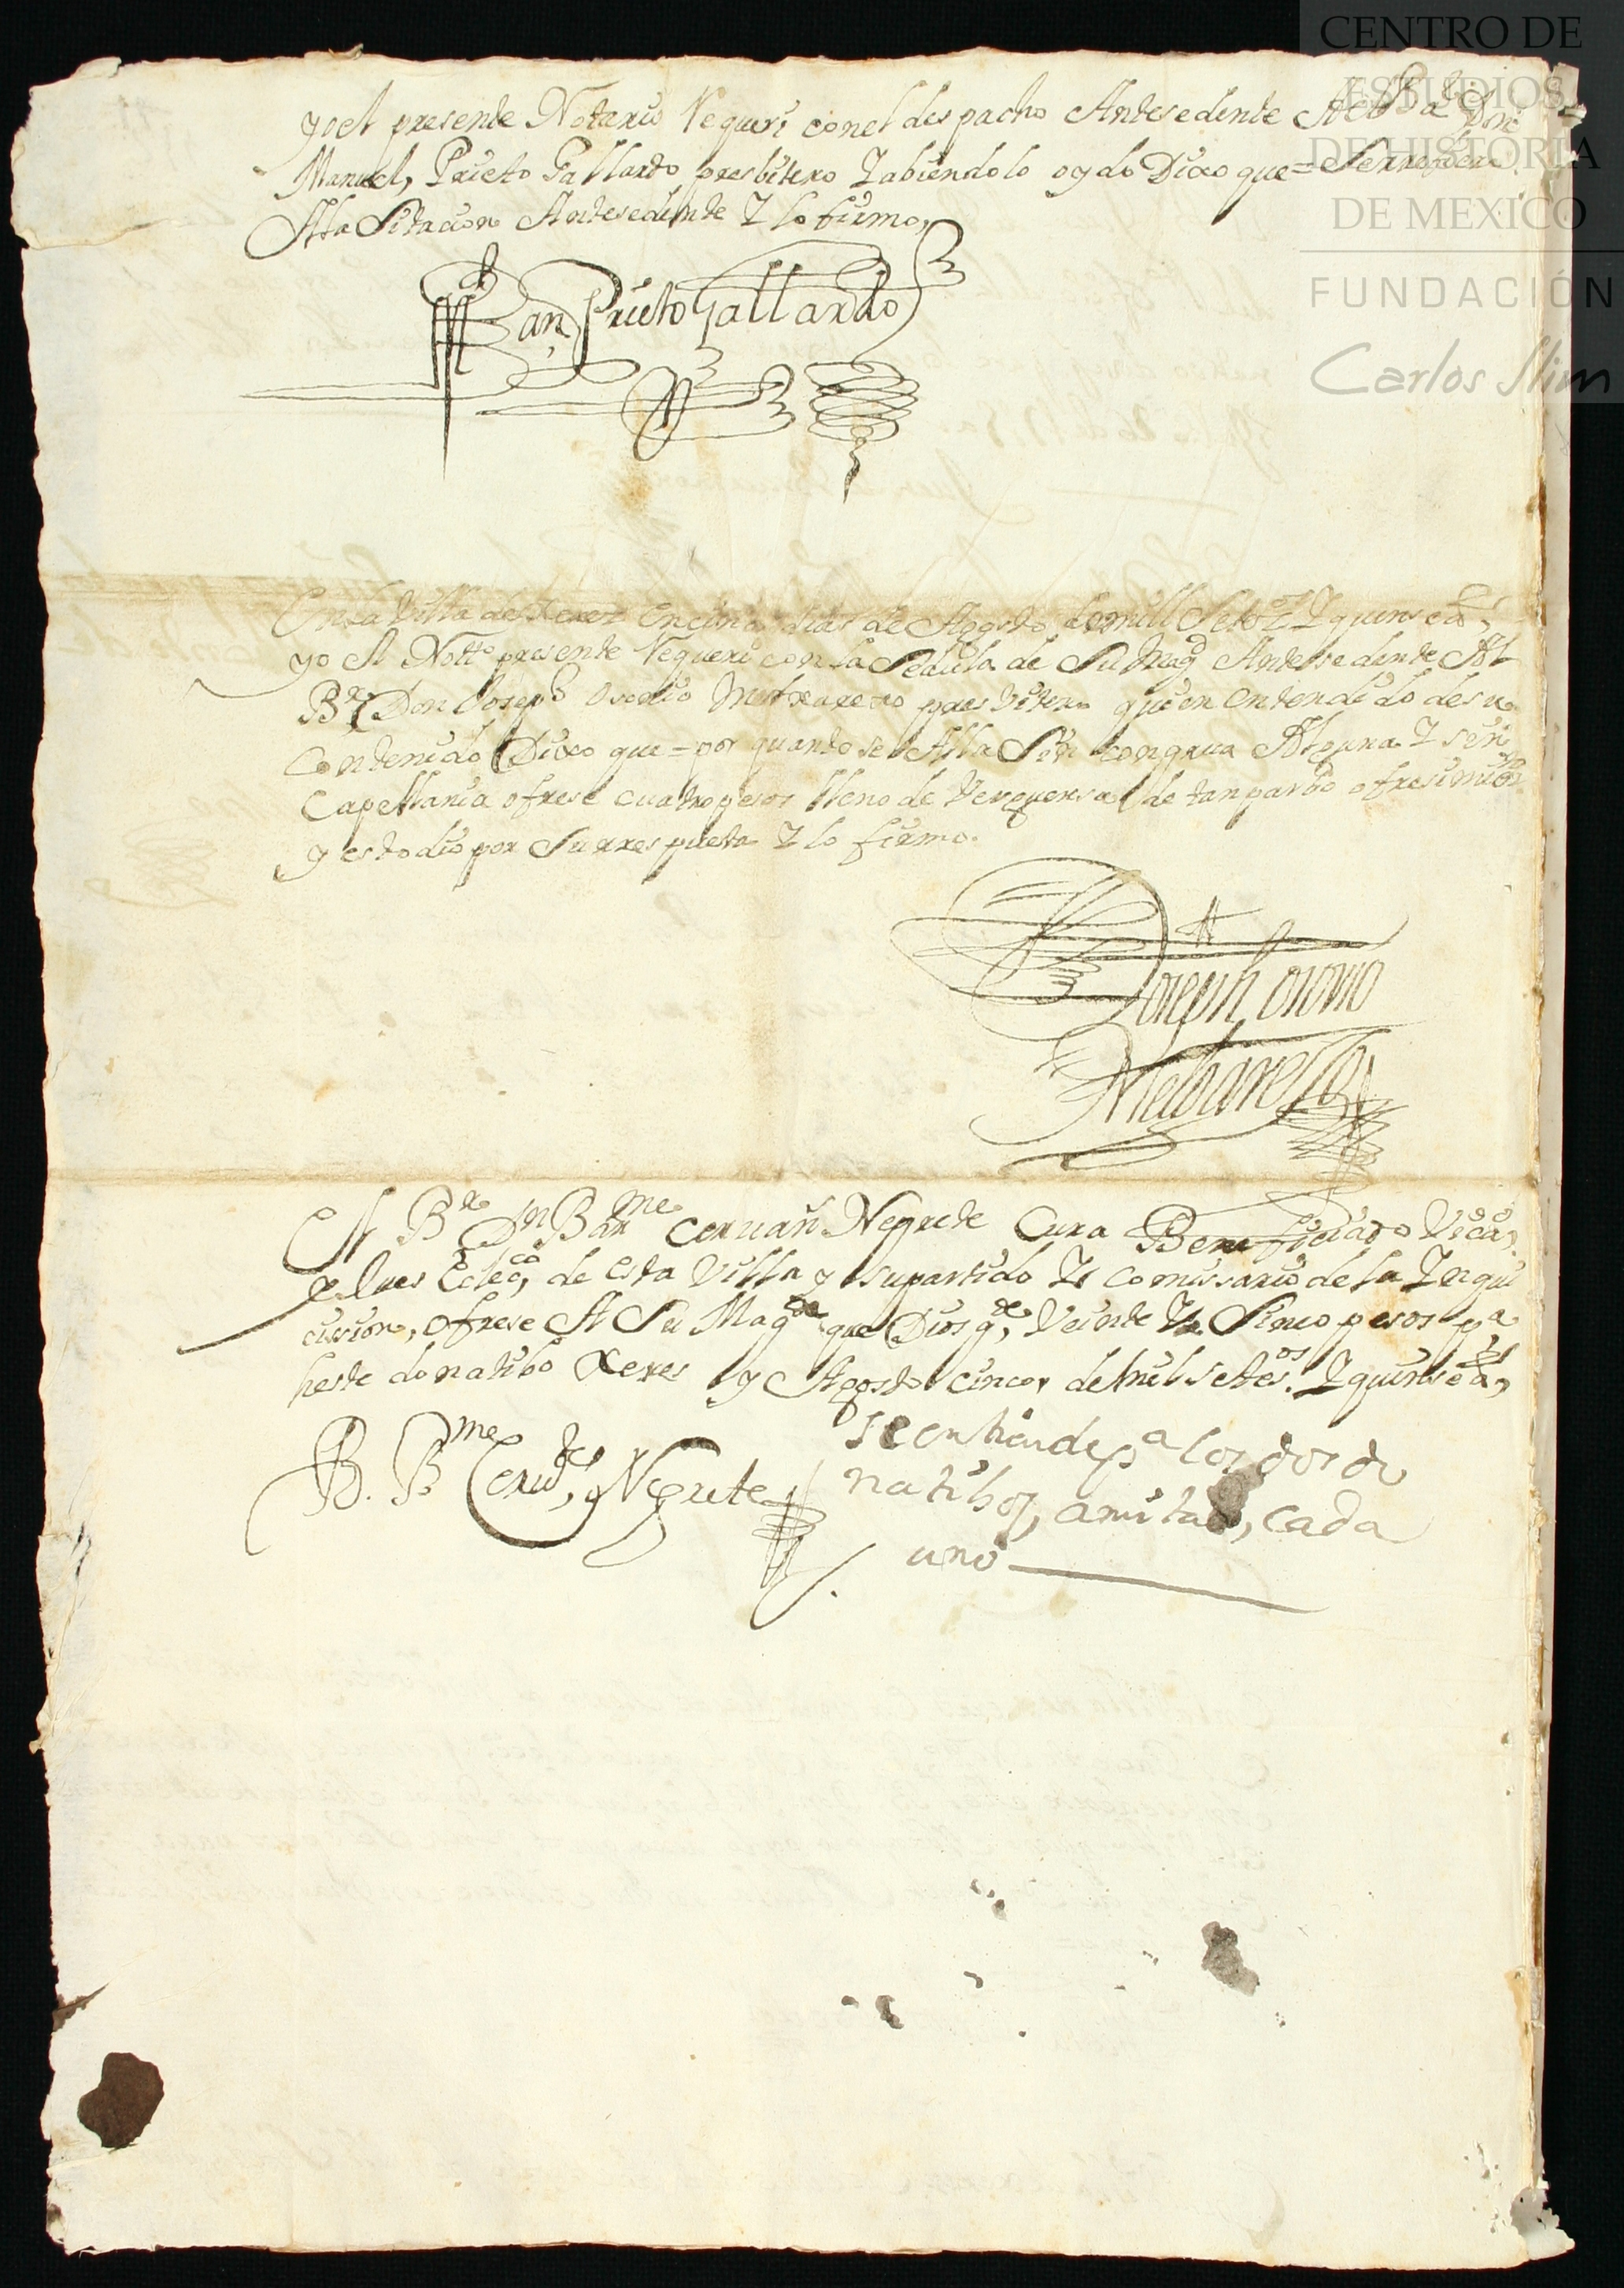 CENTRO DE
ESTUDIOS
DE HISTORIA
DE MEXICO
FUNDACIÓN
Carlos Slim
yo el presente Notario Requeri con el despacho Antesedente Al Don
Manuel, Prieto Gallardo presbitero Y abiendolo oydo Dixo que =
A la Sitacion Antesedente Y lo firmo,
Man Prieto Gallardo
En la Villa de Xerez en cinco dias de Agosto de mill Setos Y quinse as,
yo el Notto presente Requeri con la Sedula de Su Magd Antesedente Al
Br Don Joseph Osorio presvitero quien entendido de su
Contenido Dixo que = por quanto se Alla Sin congrua Alguna Y sin
Capellania ofrese cuatro pesos lleno de Verguensa de tan parbo ofresimiento
y esto dio por Su rrespuesta Y lo firmo.
Joseph Osorio
El Br Dn Barme Cervans Negrete Cura Beneficiado Vico
y Jues Ecleco, de esta Villa y su partido Y Comissario de la Inqui
cision, ofrese A Su Magde que Dios gde, Veinte Y Sinco pesos pa
heste donatibo Xeres y Agosto cinco, de mil setesos. Y quinse as,
B. Bme Cervtes, Negrete
se entiende pa los dos do
natibos, a mitad, cada
uno